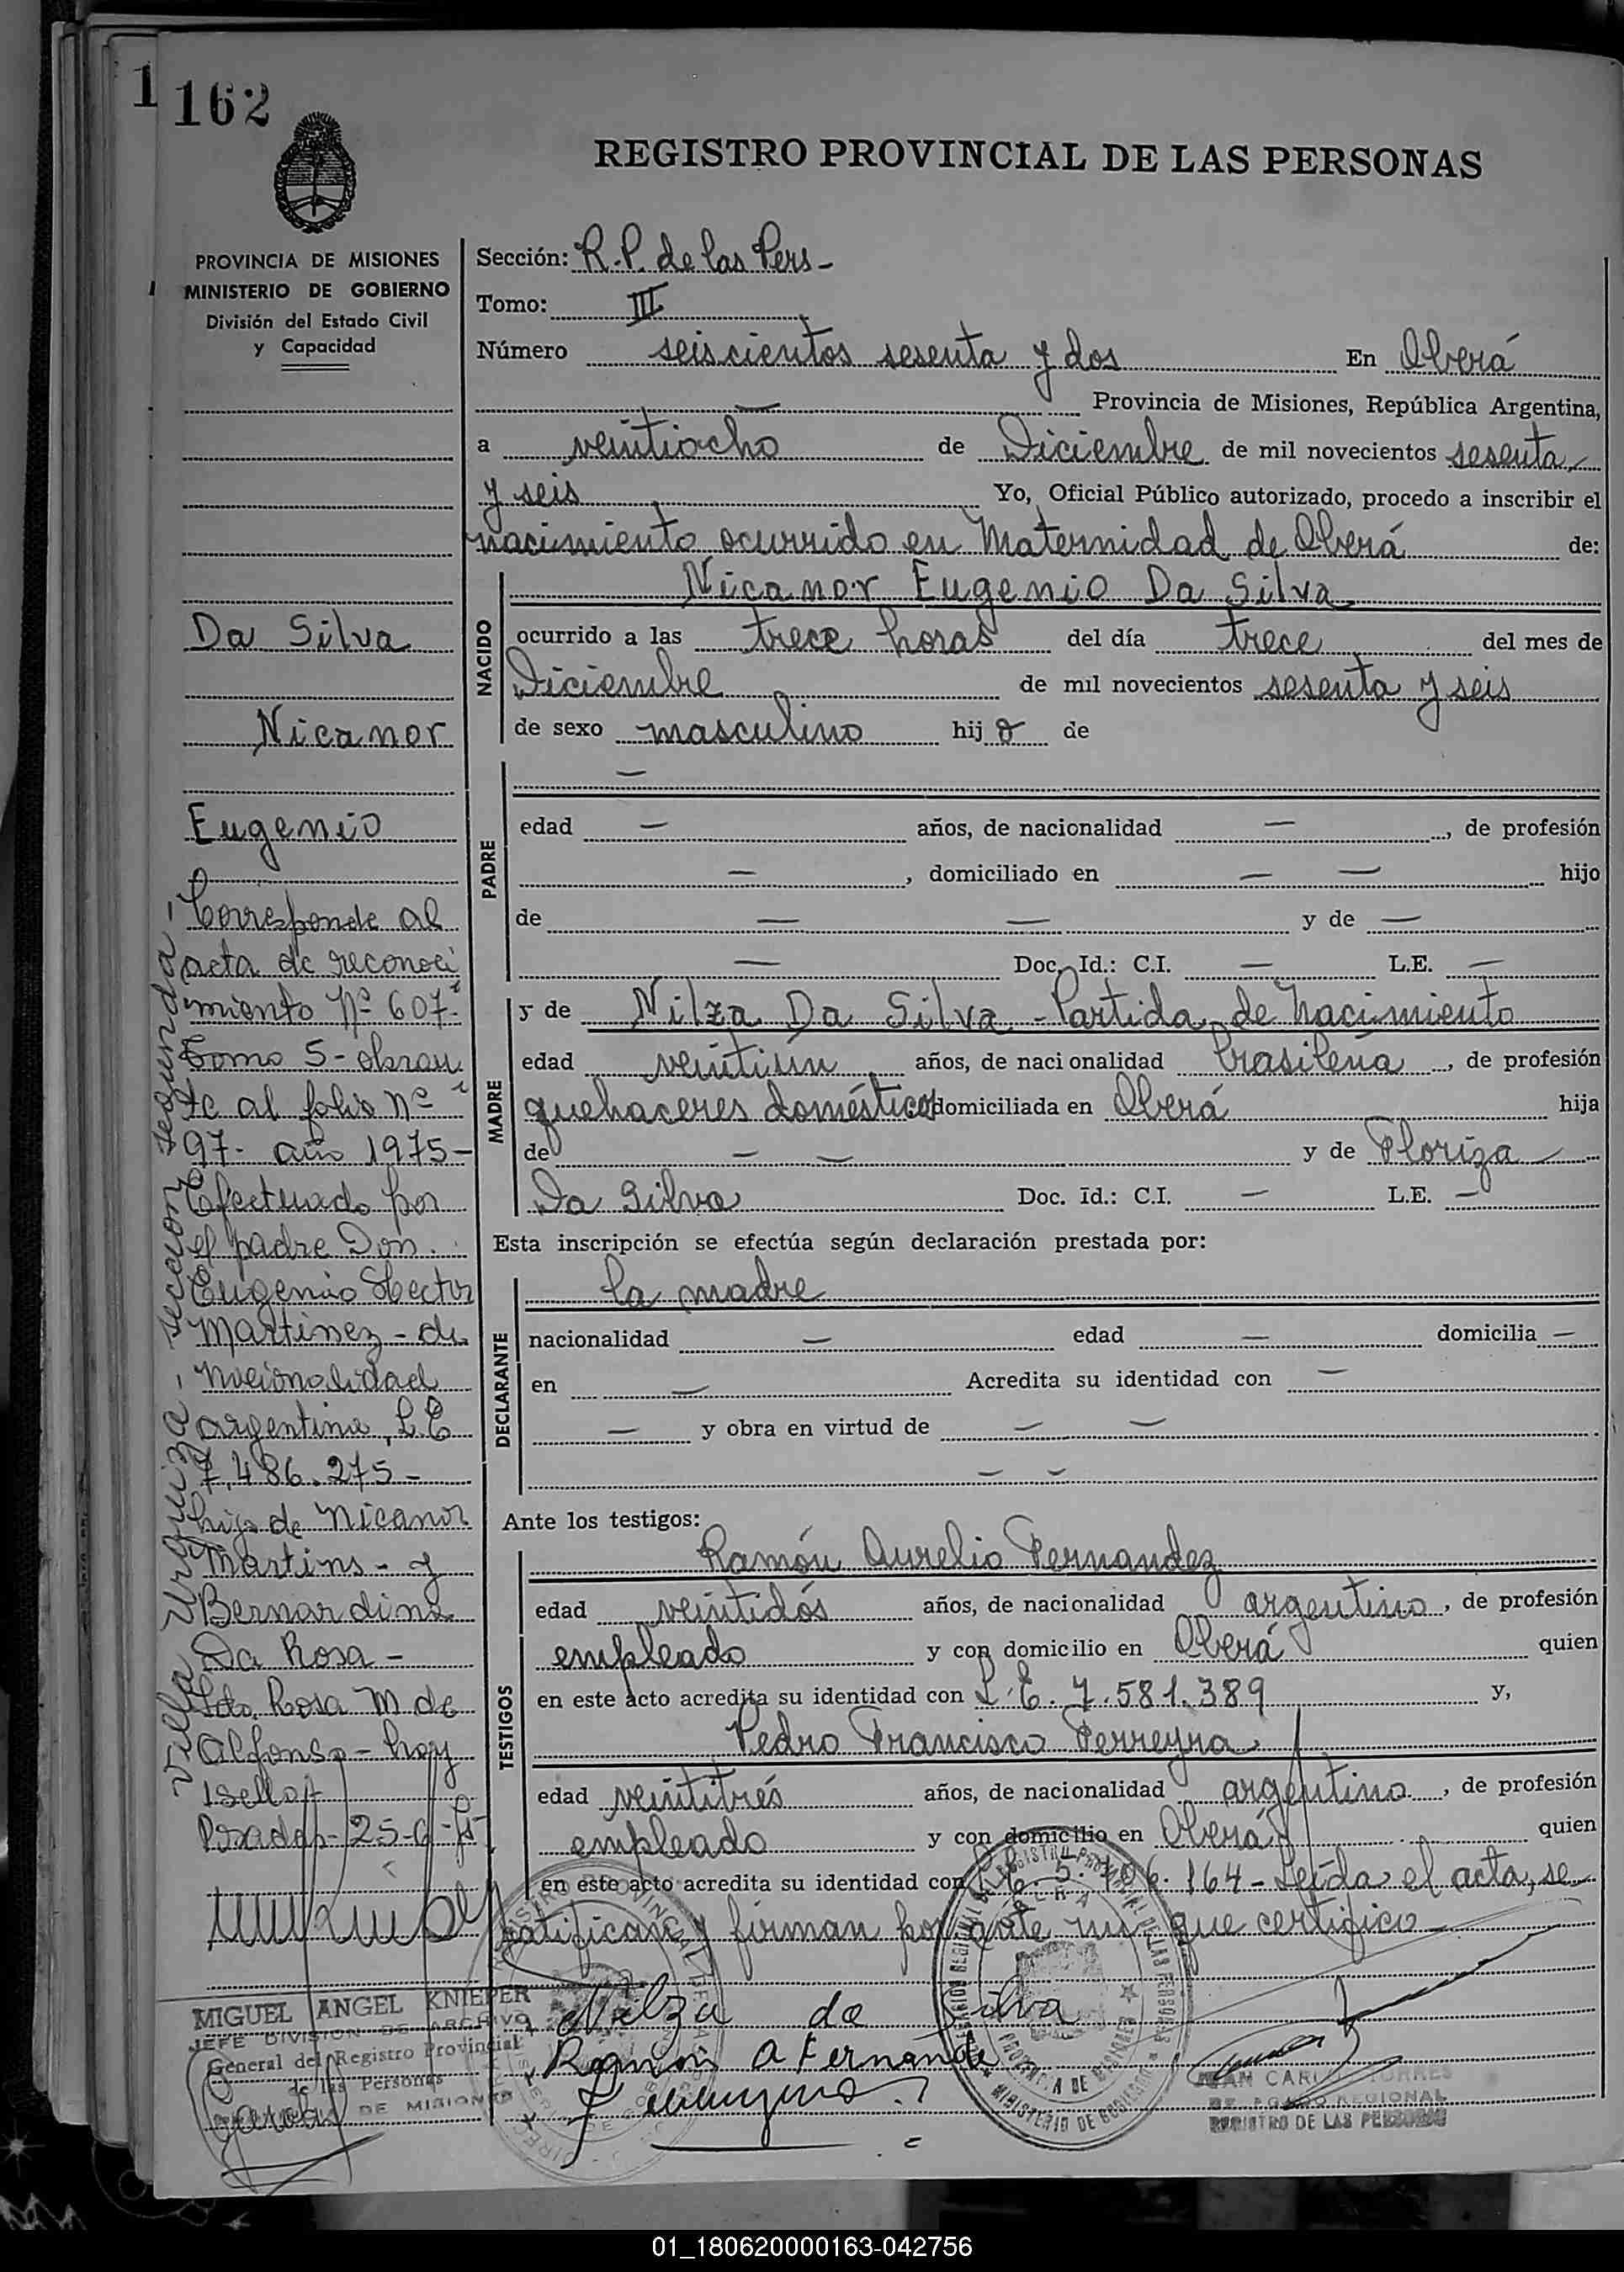 1 162
REGISTRO PROVINCIAL DE LAS PERSONAS
PROVINCIA DE MISIONES
MINISTERIO DE GOBIERNO
División del Estado Civil
y Capacidad
Da Silva
Nicanor
Eugenio
Corresponde al
acta de reconoci
miento Nº 607-
Tomo 5 - obran
te al folio nº
97- año 1975-
Efectuado por
el padre Don
Eugenio Hector
Martinez - de
nacionalidad
argentina, L E
7.486.275-
hijo de Nicanor
Martins - y
Bernardina
Da Rosa -
Fdo. Rosa M de
Alfonso - hay
1 sello
Posadas - 25-6-75
villa Urquiza - seccion segunda -
MIGUEL ANGEL KNIEPER
JEFE DIVISION DE ARCHIVO
General del Registro Provincial
de las Personas
DE MISIONES
Sección: R.P. de las Pers-
Tomo: III
Número seiscientos sesenta y dos En Oberá
Provincia de Misiones, República Argentina,
a veintiocho de Diciembre de mil novecientos sesenta
y seis Yo, Oficial Público autorizado, procedo a inscribir el
nacimiento ocurrido en Maternidad de Oberá de:
NACIDO
Nicanor Eugenio Da Silva
ocurrido a las trece horas del día trece del mes de
Diciembre de mil novecientos sesenta y seis
de sexo masculino hijo de
PADRE
—
edad — años, de nacionalidad —, de profesión
—, domiciliado en — — hijo
de — — y de —
— Doc. Id.: C.I. — L.E. —
MADRE
y de Nilza Da Silva - Partida de Nacimiento
edad veintiún años, de naci onalidad brasileña, de profesión
quehaceres domésticos domiciliada en Oberá hija
de — — y de Floriza
Da Silva Doc. Id.: C.I. — L.E. —
Esta inscripción se efectúa según declaración prestada por:
DECLARANTE
la madre
nacionalidad — edad — domicilia —
en — Acredita su identidad con —
— y obra en virtud de — —
— —
Ante los testigos:
TESTIGOS
Ramón Aurelio Fernandez
edad veintidós años, de nacionalidad argentino, de profesión
empleado y con domicilio en Oberá quien
en este acto acredita su identidad con L.E. 7.581.389 y,
Pedro Francisco Ferreyra
edad veintitrés años, de nacionalidad argentino, de profesión
empleado y con domicilio en Oberá quien
en este acto acredita su identidad con 164 - Leída el acta, se
ratifican y firman por ante mi que certifico
Nilza da Silva
Ramon A Fernande
JUAN CARLOS TORRES
REGIONAL
REGISTRO DE LAS PERSONAS
01_180620000163-042756